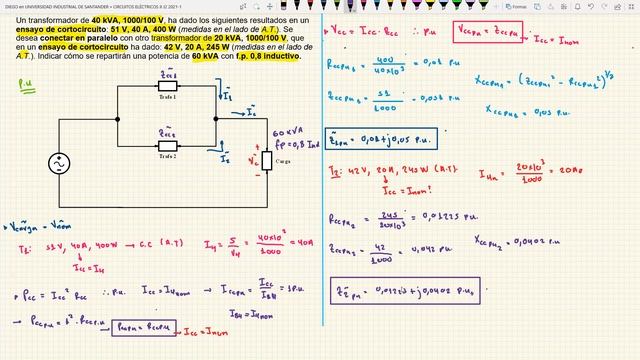 DIEGO en UNIVERSIDAD INDUSTRIAL DE SANTANDER • CIRCUITOS ELÉCTRICOS II // 2021-1
Un transformador de 40 kVA, 1000/100 V, ha dado los siguientes resultados en un
ensayo de cortocircuito: 51 V, 40 A, 400 W (medidas en el lado de A.T.). Se
desea conectar en paralelo con otro transformador de 20 kVA, 1000/100 V, que
en un ensayo de cortocircuito ha dado: 42 V, 20 A, 245 W (medidas en el lado de
A.T.). Indicar cómo se repartirán una potencia de 60 kVA con f.p. 0,8 inductivo.
P.u
Zcc1
Trafo 1
I1
Ic
Zcc2
Trafo 2
I2
60 kVA
fp=0,8 Ind
+
Vc
-
Carga
→ Vcarga = Vnom
T1: 51V, 40A, 400W → C.C (A.T)
Icc = I4
I4 = S/V4 = 40x10³/1000 = 40A
→ Pcc = Icc² Rcc ∴ P.u. Icc = I4nom → Iccpu = Icc/IB4 = 1 P.u
IB4 = I4nom
→ Pccpu = 1² · Rccp.u → Pccpu = Rccpu → Icc = Inom
→ Vcc = Icc · Zcc ∴ P.u Vccpu = Zccpu → Icc = Inom
Rccpu1 = 400/40x10³ = 0,01 p.u
Zccpu1 = 51/1000 = 0,051 p.u
Xccpu1 = (Zccpu1² - Rccpu1²)^1/2
Xccpu1 = 0,05 p.u
Z1pu = 0,01 + j0,05 p.u.
T2: 42V, 20A, 245W (A.T)
Icc = Inom?
I4n = 20x10³/1000 = 20A
Rccpu2 = 245/20x10³ = 0,01225 p.u.
Zccpu2 = 42/1000 = 0,042 p.u
Xccpu2 = 0,0402 p.u
Z2pu = 0,01225 + j0,0402 p.u.